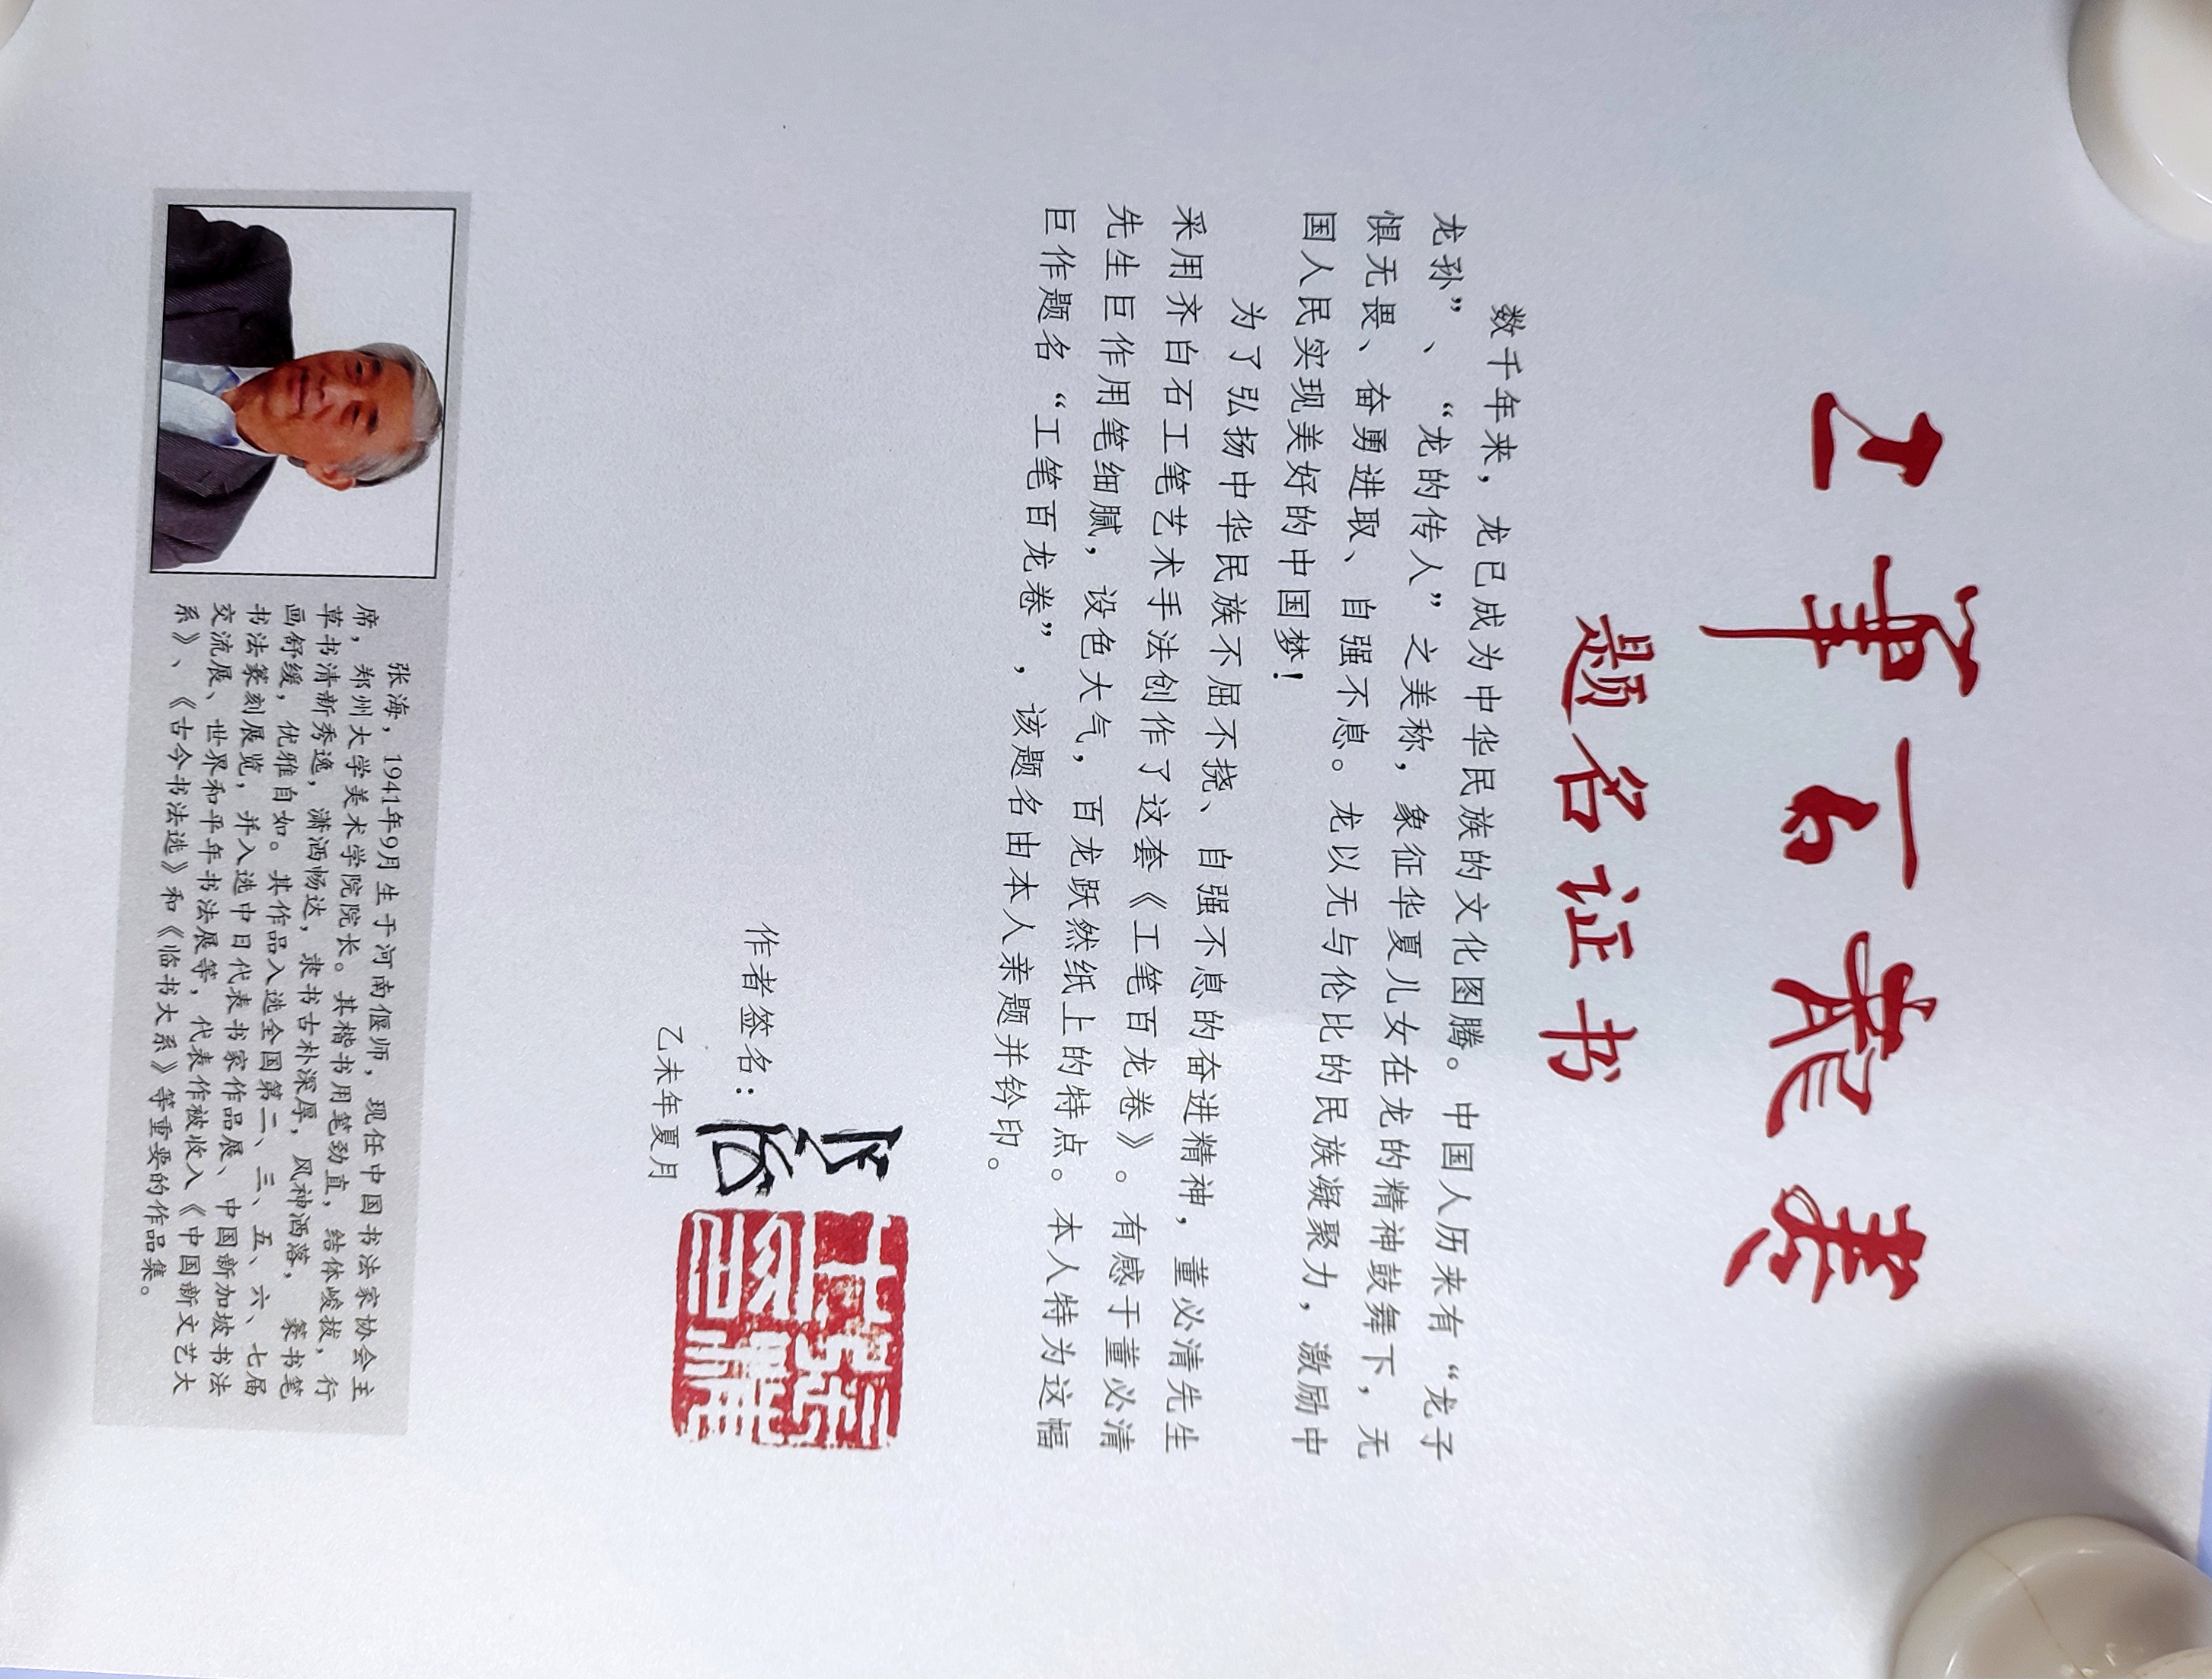 工笔百龙卷
题名证书
数千年来，龙已成为中华民族的文化图腾。中国人历来有“龙子
龙孙”、“龙的传人”之美称，象征华夏儿女在龙的精神鼓舞下，无
惧无畏、奋勇进取、自强不息。龙以无与伦比的民族凝聚力，激励中
国人民实现美好的中国梦！
为了弘扬中华民族不屈不挠、自强不息的奋进精神，董必清先生
采用齐白石工笔艺术手法创作了这套《工笔百龙卷》。有感于董必清
先生巨作用笔细腻，设色大气，百龙跃然纸上的特点。本人特为这幅
巨作题名“工笔百龙卷”，该题名由本人亲题并钤印。
作者签名：张海
乙未年夏月
张海，1941年9月生于河南偃师，现任中国书法家协会主
席，郑州大学美术学院院长。其楷书用笔劲直，结体峻拔，行
草书清新秀逸，潇洒畅达，隶书古朴深厚，风神洒落，篆书笔
画舒缓，优雅自如。其作品入选全国第二、三、五、六、七届
书法篆刻展览，并入选中日代表书家作品展、中国新加坡书法
交流展、世界和平年书法展等，代表作被收入《中国新文艺大
系》、《古今书法选》和《临书大系》等重要的作品集。